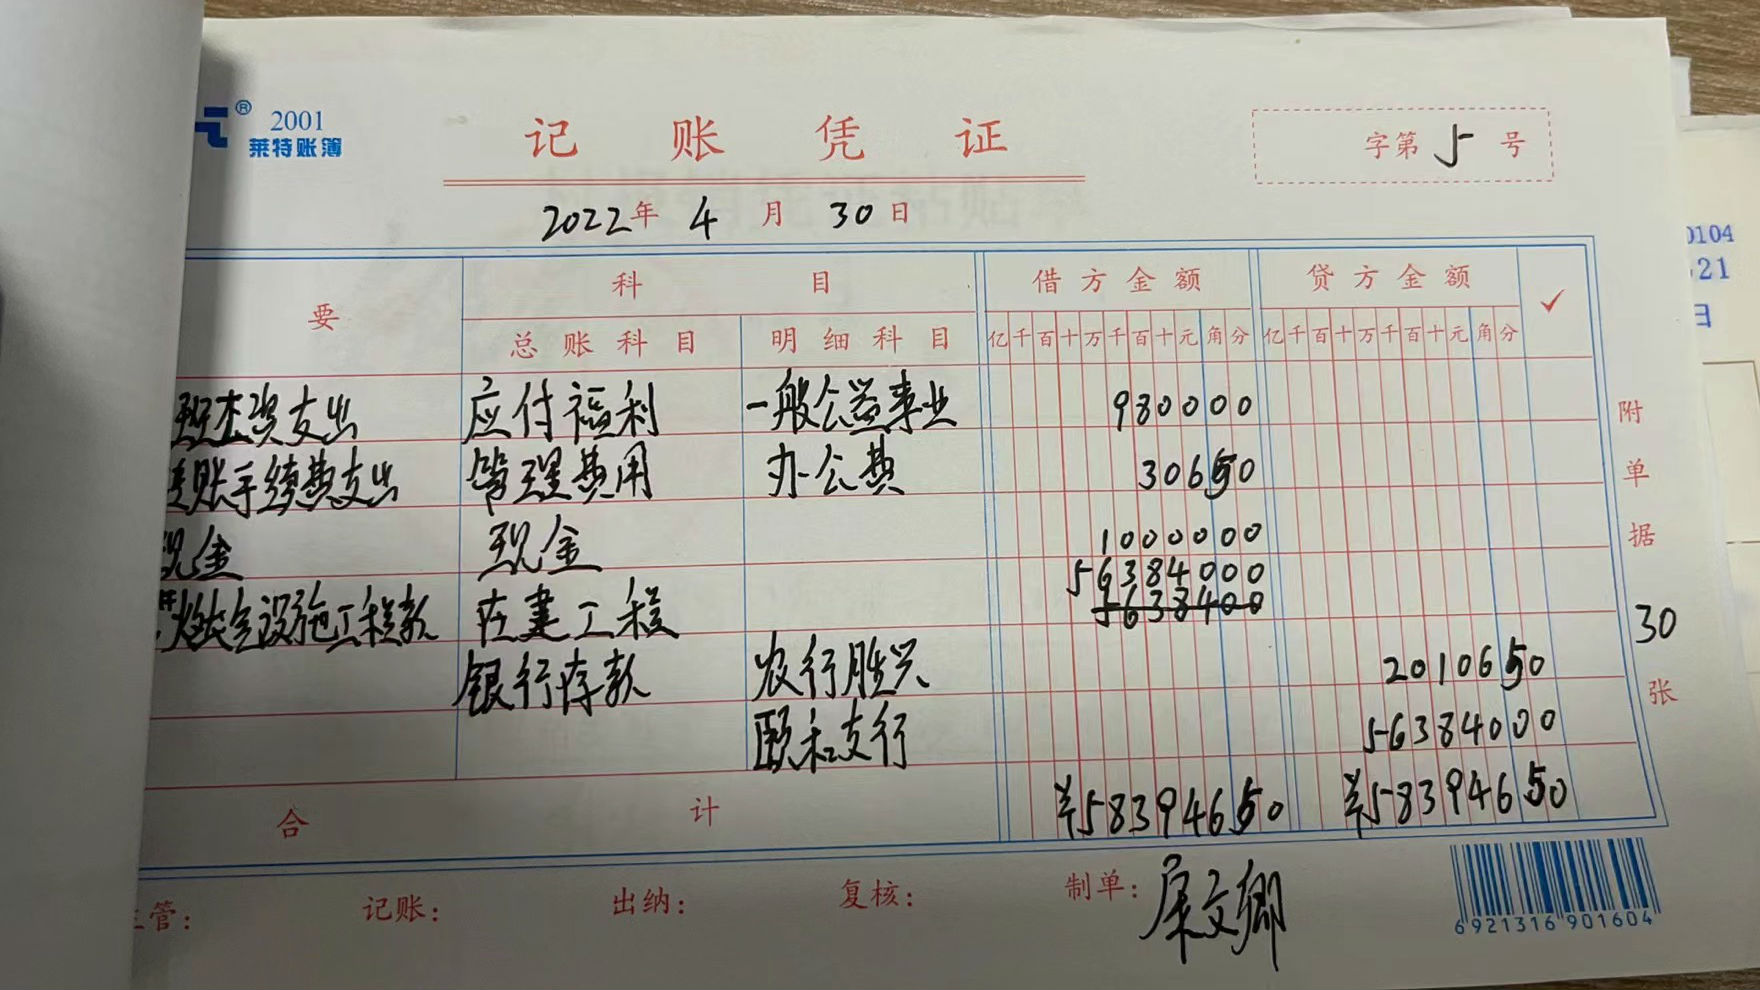 ® 2001
莱特账簿
记账凭证
字第 5 号
2022年 4 月 30 日
要 科目 借方金额 贷方金额 ✓
总账科目 明细科目 亿千百十万千百十元角分 亿千百十万千百十元角分
支出 应付福利 一般公益事业 980000
账手续费支出 管理费用 办公费 30650
现金 现金 1000000
56384000
燃气设施工程款 在建工程 5638400
银行存款 农行胜兴 2010650
颐和支行 56384000
合计 ¥58394650 ¥58394650
附单据 30 张
管: 记账: 出纳: 复核: 制单: 文卿
6921316901604
0104
21
日